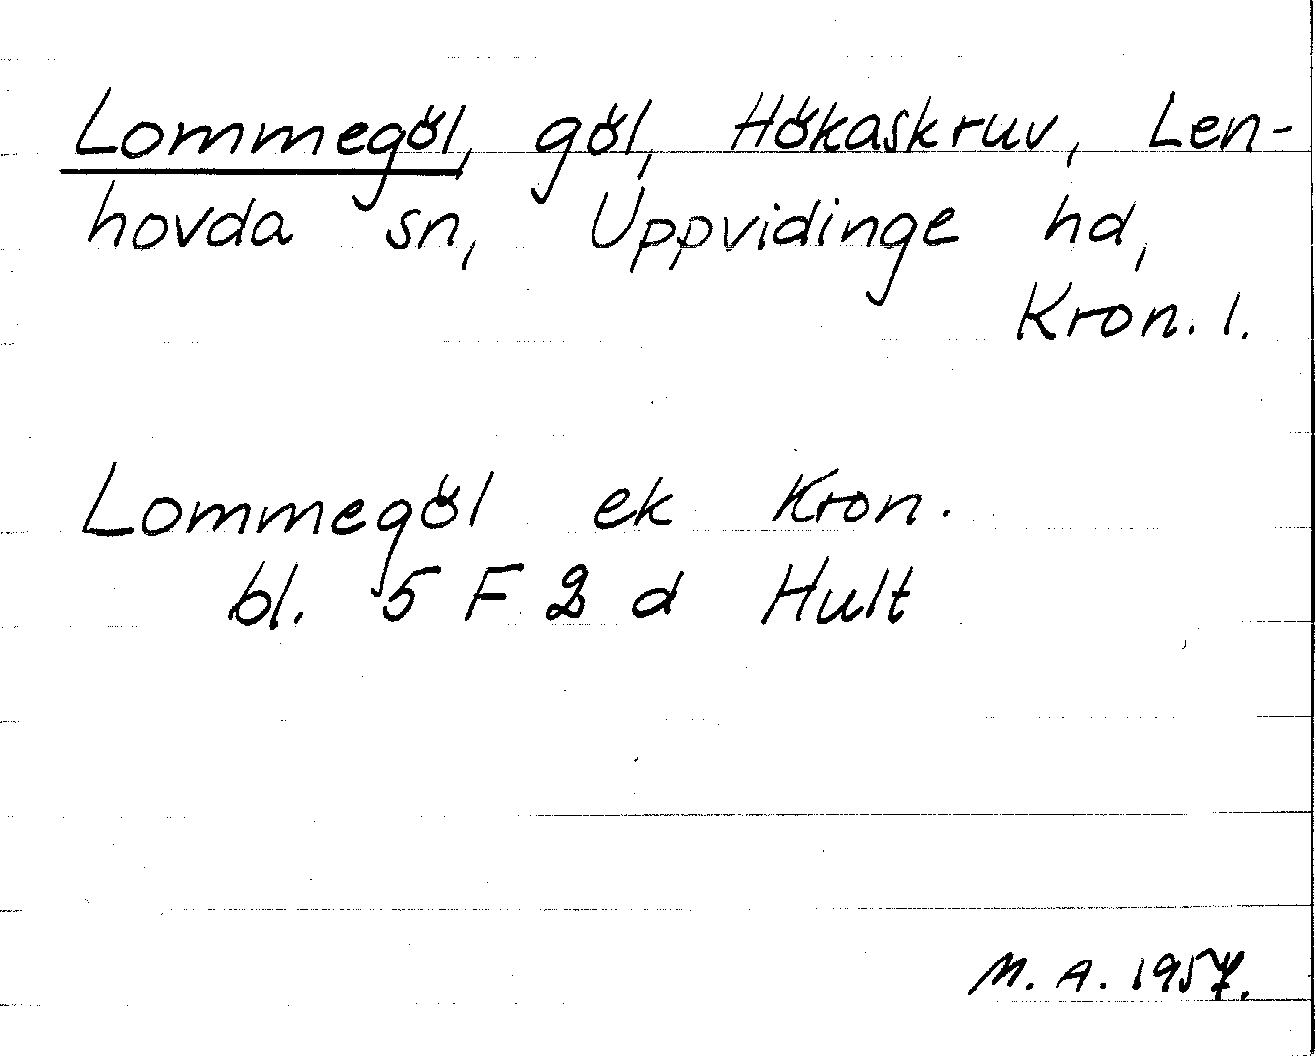 Lommegöl, göl, Hökaskruv, Len-
hovda sn, Uppvidinge hd,
Kron. l.
Lommegöl ek Kron.
bl. 5 F 2 d Hult
M. A. 1957.